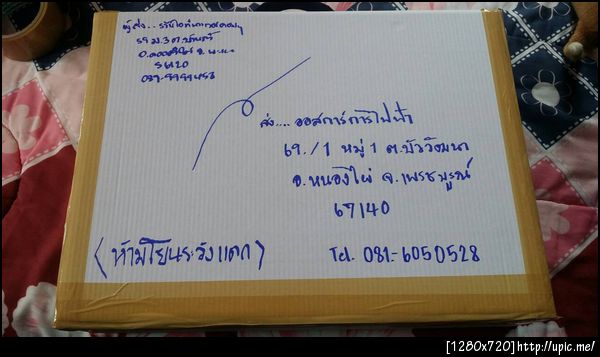 ผู้ส่ง..
59 ม.3 ต.
56120
ส่ง.... ออสการ์การไฟฟ้า
69./1 หมู่ 1 ต.บัววัฒนา
อ.หนองไผ่ จ.เพรชบูรณ์
67140
(ห้ามโยนระวังแตก)
Tel. 081-6050528
[1280x720]http://upic.me/